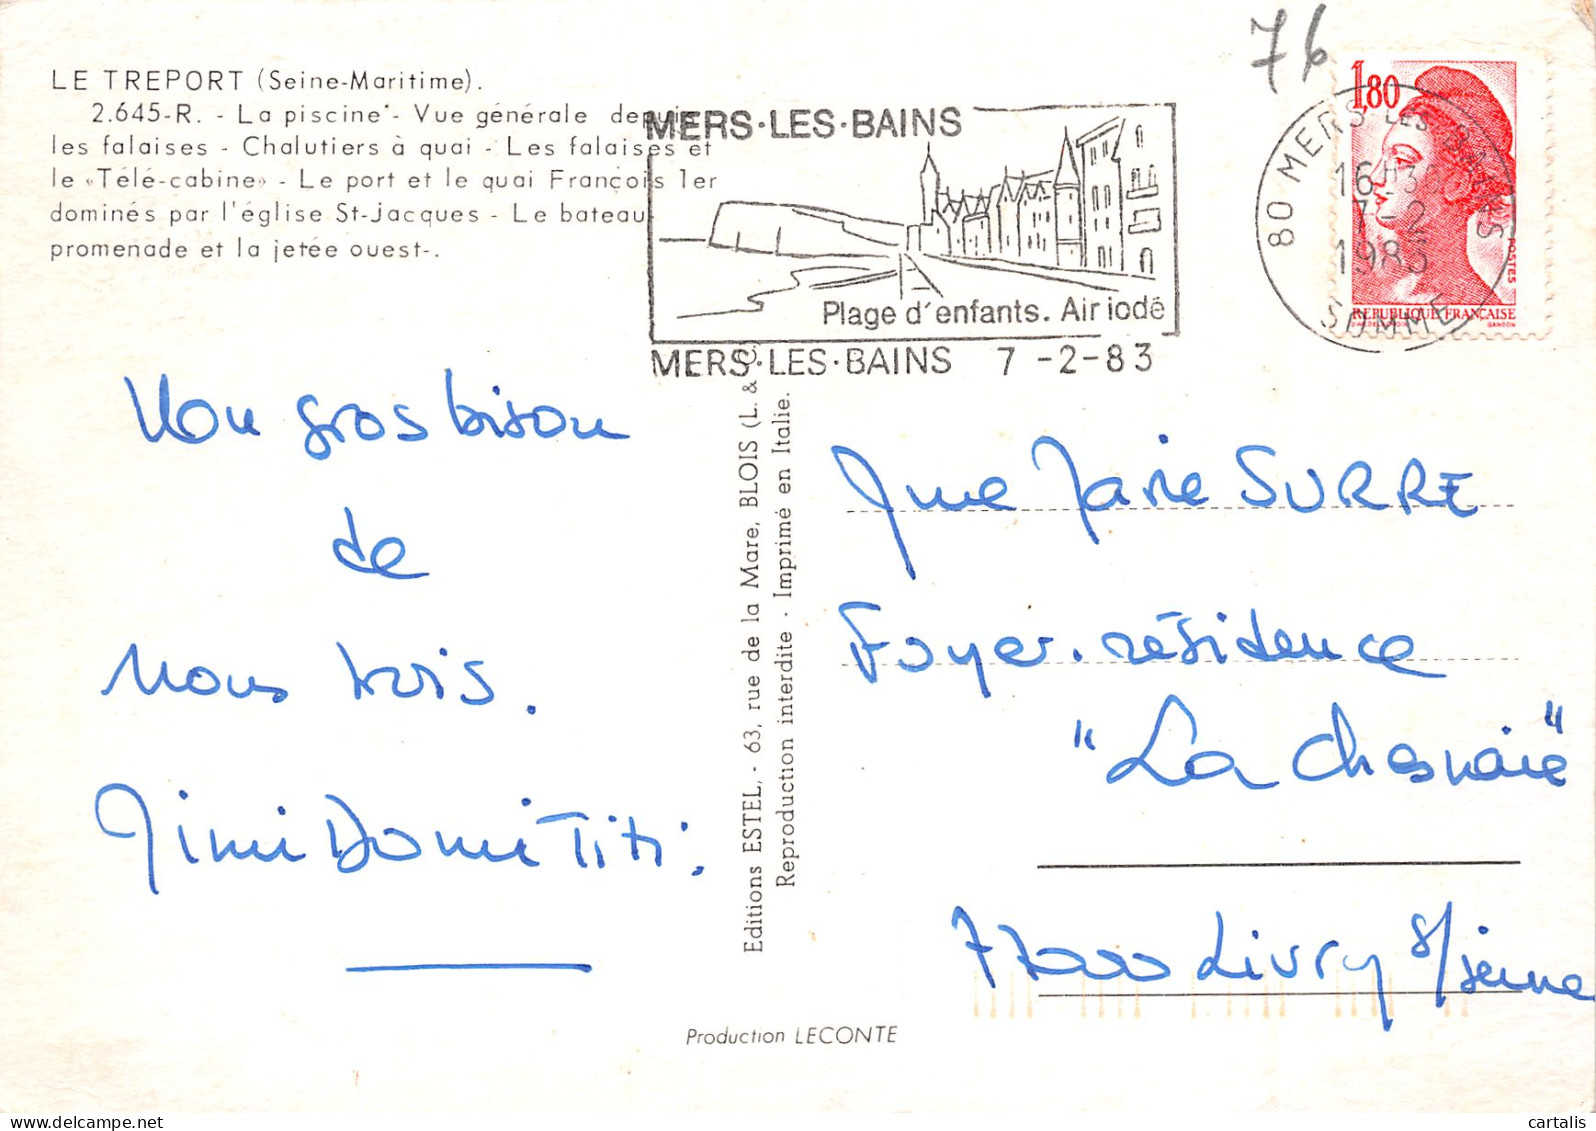 76
LE TREPORT (Seine-Maritime).
2.645-R. - La piscine - Vue générale depuis
les falaises - Chalutiers à quai - Les falaises et
le «Télé-cabine» - Le port et le quai François 1er
dominés par l'église St-Jacques - Le bateau
promenade et la jetée ouest-.
MERS·LES·BAINS
Plage d'enfants. Air iodé
MERS·LES·BAINS 7 -2-83
80 MERS LES BAINS
16H30
7-2
1983
SOMME
1,80
POSTES
REPUBLIQUE FRANÇAISE
GANDON
Mon gros bison
de
nous trois.
Mimi Domi Titi.
Editions ESTEL, - 63, rue de la Mare, BLOIS (L. &
Reproduction interdite · Imprimé en Italie.
Mme Marie SURRE
Foyer-résidence
"La Chesnaie"
77000 Livry s/seine
Production LECONTE
cartalis